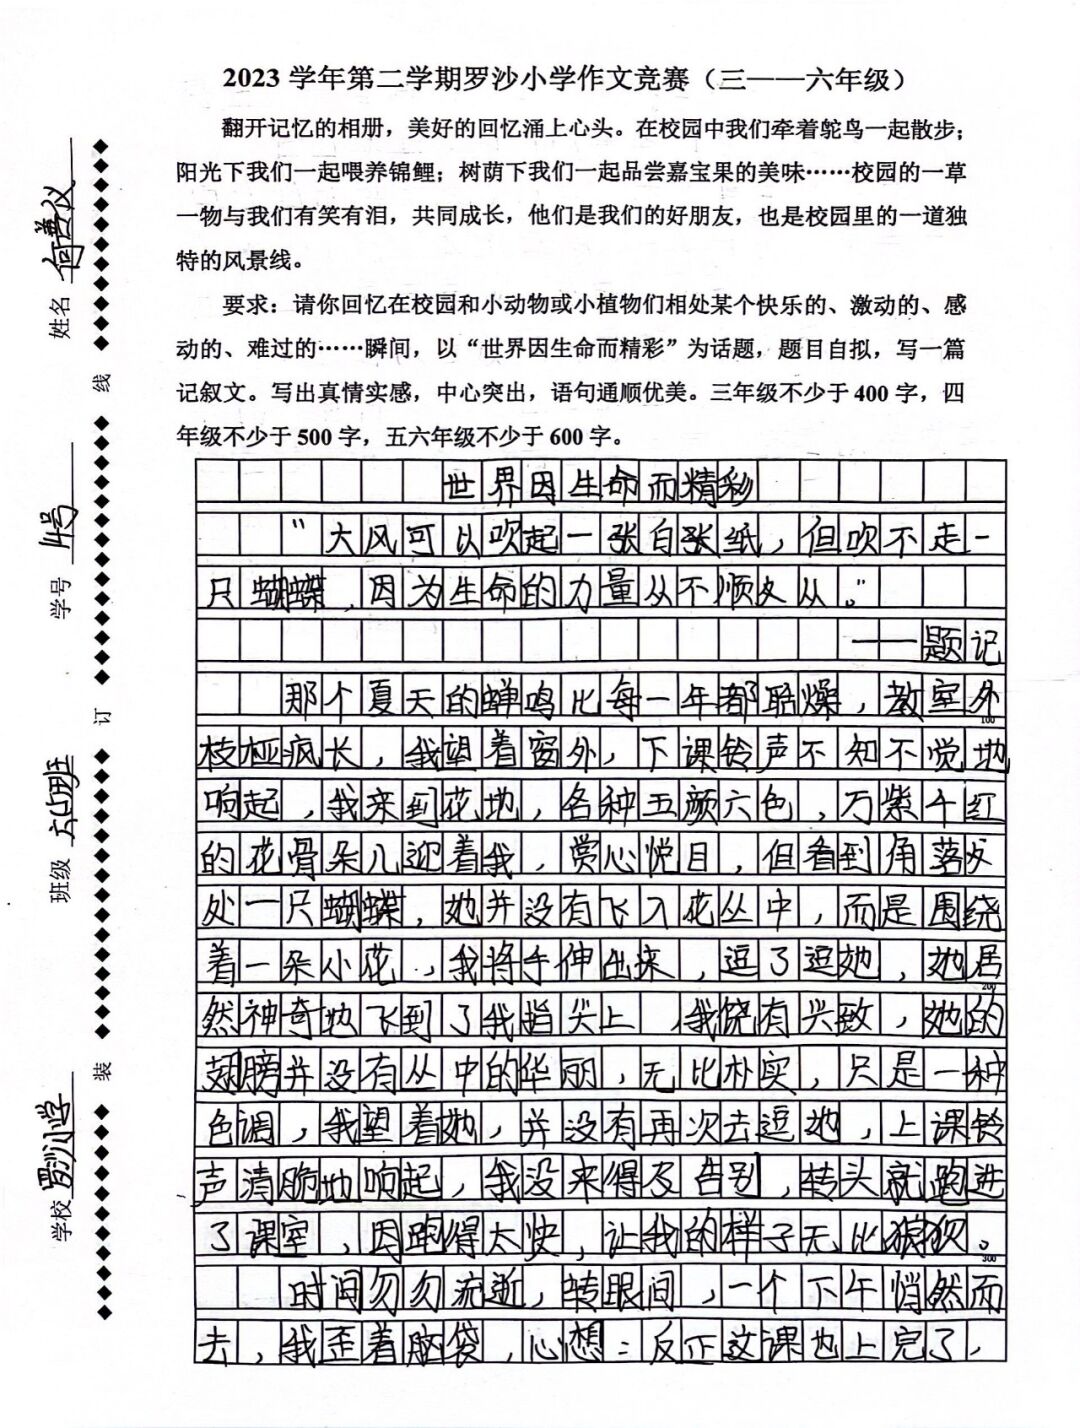 2023 学年第二学期罗沙小学作文竞赛（三——六年级）
翻开记忆的相册，美好的回忆涌上心头。在校园中我们牵着鸵鸟一起散步；
阳光下我们一起喂养锦鲤；树荫下我们一起品尝嘉宝果的美味……校园的一草
一物与我们有笑有泪，共同成长，他们是我们的好朋友，也是校园里的一道独
特的风景线。
要求：请你回忆在校园和小动物或小植物们相处某个快乐的、激动的、感
动的、难过的……瞬间，以“世界因生命而精彩”为话题，题目自拟，写一篇
记叙文。写出真情实感，中心突出，语句通顺优美。三年级不少于 400 字，四
年级不少于 500 字，五六年级不少于 600 字。
世界因生命而精彩
“大风可以吹起一张白张纸，但吹不走一
只蝴蝶，因为生命的力量从不顺从。”
——题记
那个夏天的蝉鸣比每一年都聒燥，教室外
100
枝桠疯长，我望着窗外，下课铃声不知不觉地
响起，我来到花地，各种五颜六色，万紫千红
的花骨朵儿迎着我，赏心悦目，但看到角落
处一只蝴蝶，她并没有飞入花丛中，而是围绕
着一朵小花，我将手伸出来，逗了逗她，她居
200
然神奇地飞到了我指尖上，我饶有兴致，她的
翅膀并没有丛中的华丽，无比朴实，只是一种
色调，我望着她，并没有再次去逗她，上课铃
声清脆地响起，我没来得及告别，转头就跑进
了课室，因跑得太快，让我的样子无比狼狈。
300
时间匆匆流逝，转眼间，一个下午悄然而
去，我歪着脑袋，心想：反正这课也上完了，
姓名 何善仪
学号 4号
班级
学校 罗沙小学
线
订
装